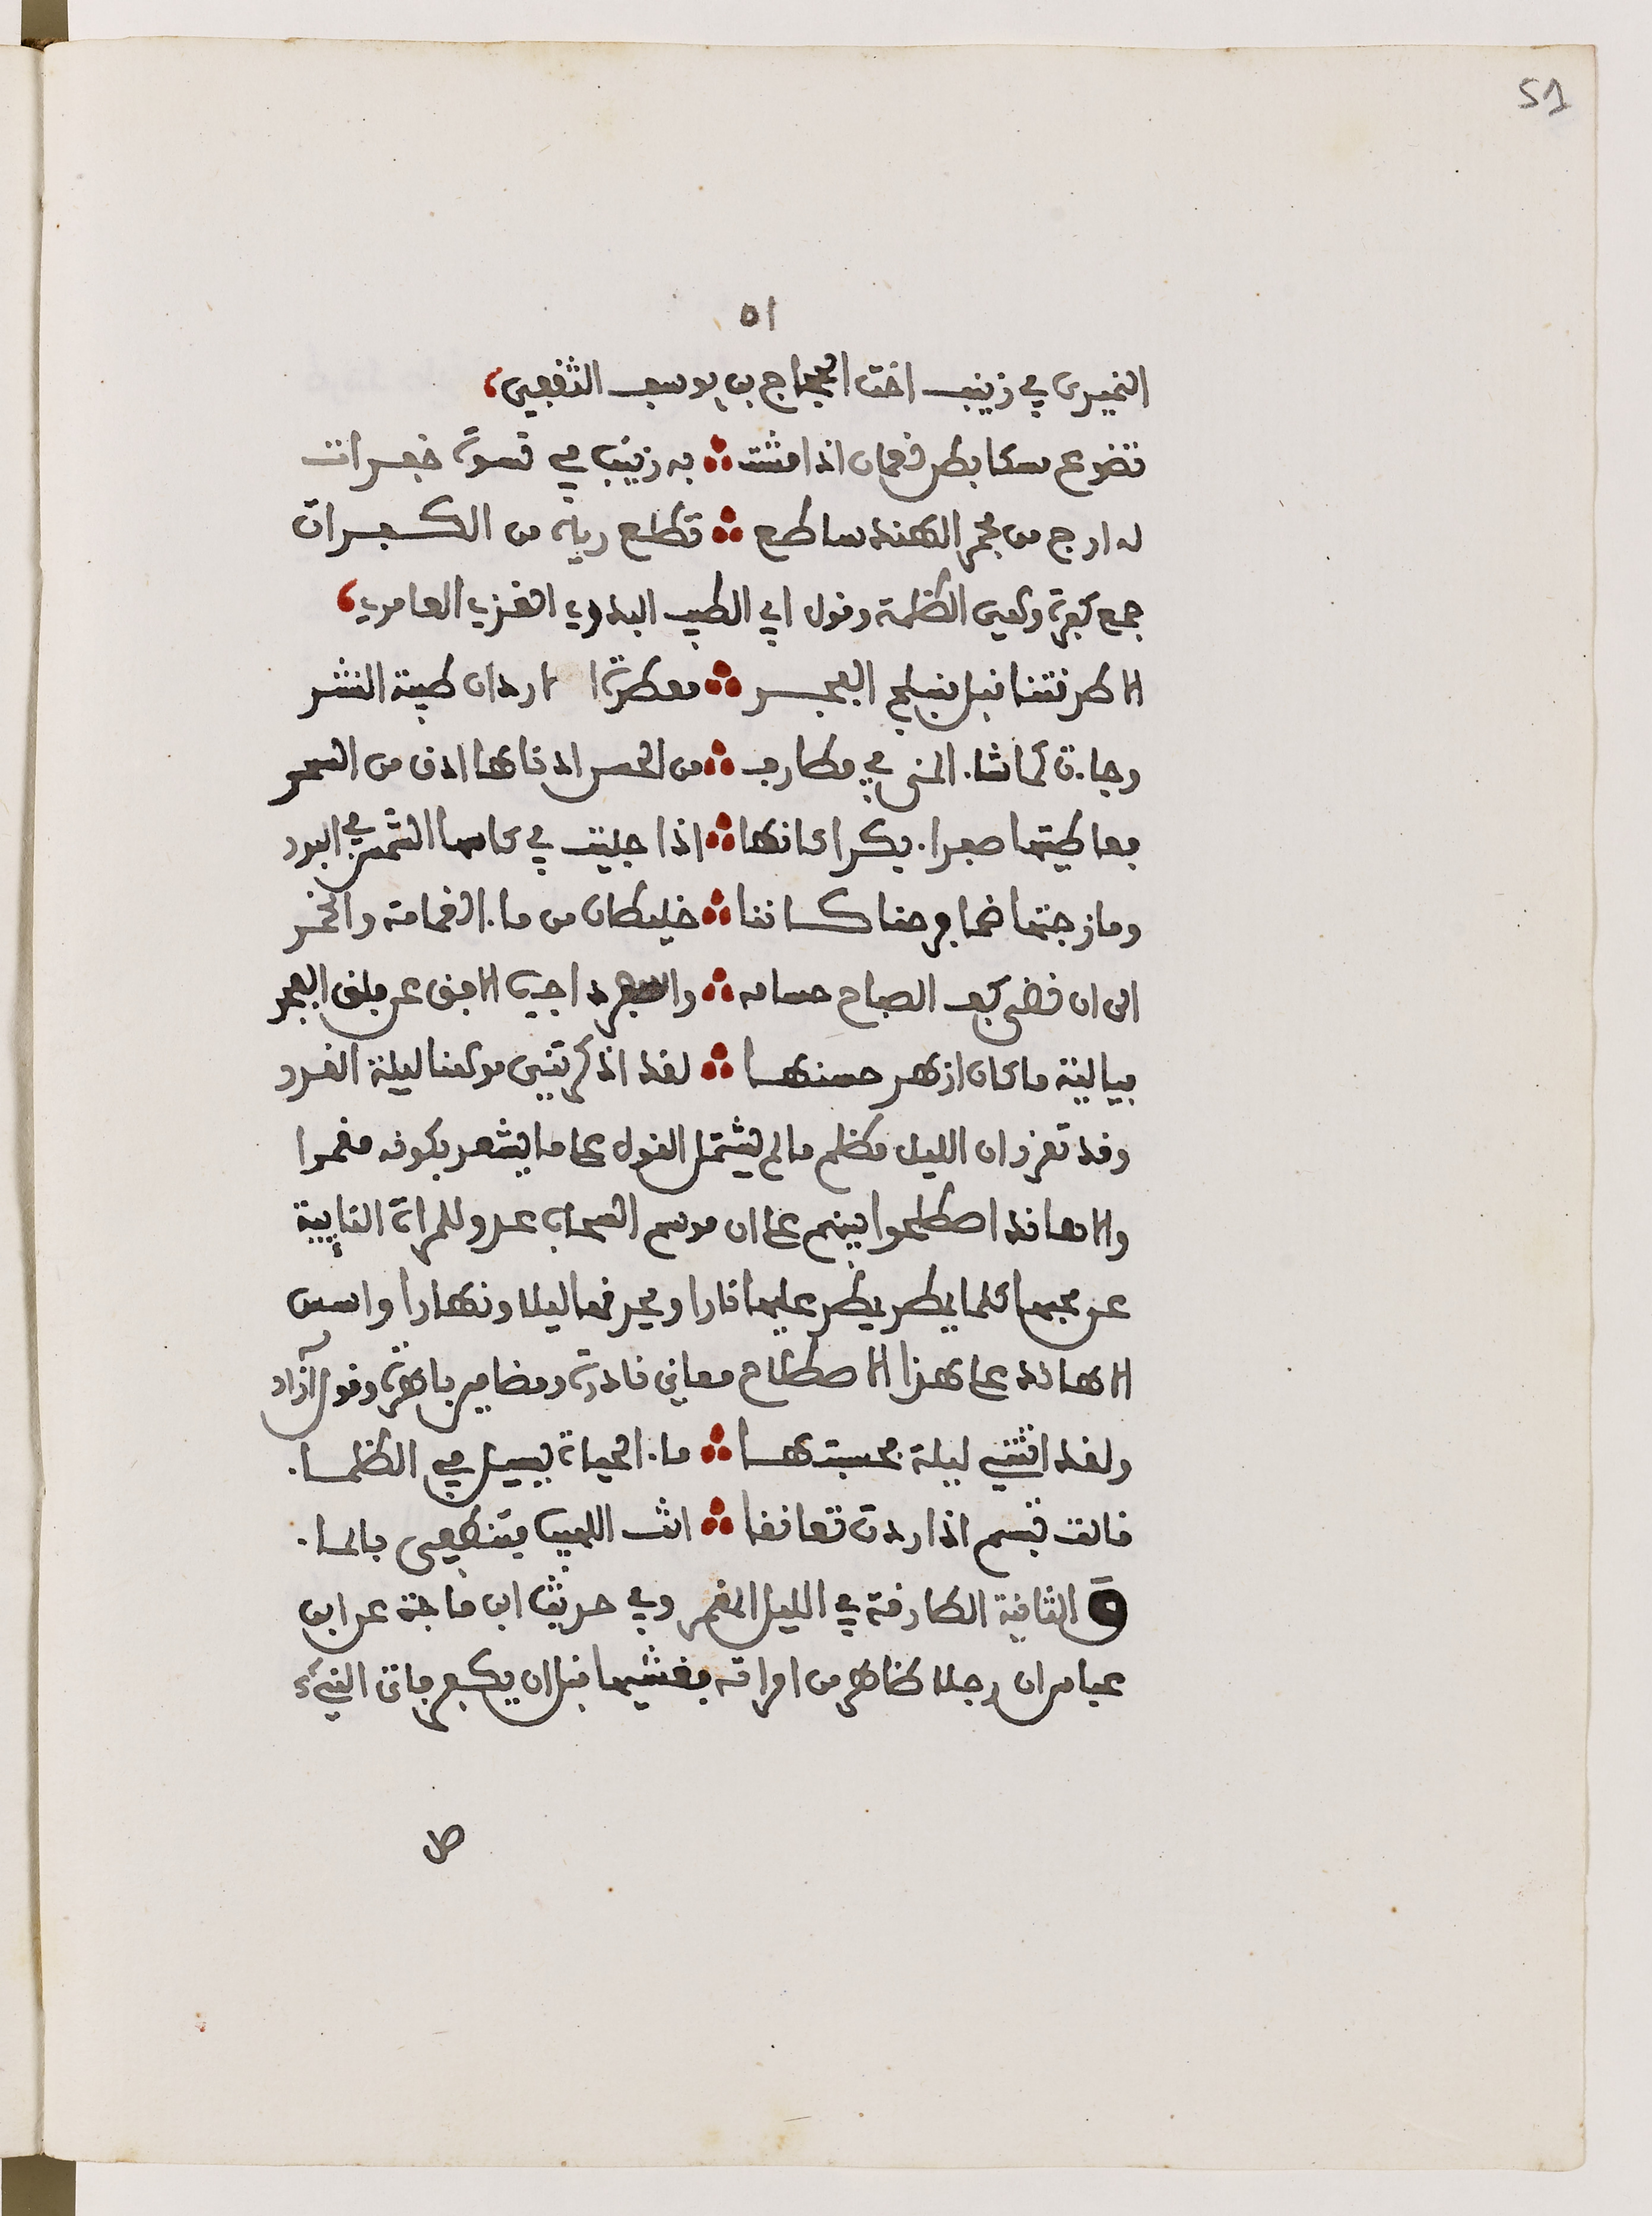 51
٥١
النميري في زينب اخت الحجاج بن يوسف الثقفي،
تضوع مسكا بطن نعمان اذا مشت ∴ به زينب في نسوة خفرات
له ارج من مجمر الهند ساطع ∴ تطلع رياه من الكفرات
جمع كفرة وهي الظلمة وقول ابي الطيب البدري الغزي العامري،
الا طرقتنا قبل منبلج الفجر ∴ معطرة الاردان طيبة النشر
وجاءت كما شاء المنى في مطارف ∴ من الحسن اذناها ادق من السحر
فعاطيتها صفراء بكرا كانها ∴ اذا جليت في كاسها الشمس في البدر
ومازجتها ضما فرحنا كاننا ∴ خليطان من ماء الغمامة والخمر
الى ان نضى كف الصباح حسامه ∴ والسفرد اجيب الافق عن فلق الفجر
فيا ليلة ما كان ازهر حسنها ∴ لقد اذكرتني موهنا ليلة القدر
وقد تقرر ان الليل مظلم ما لم يشتمل القول على ما يشعر بكونه مقمرا
والاهاند اصطلحوا بينهم على ان موسم السحاب عدو للمراة الغايبة
عن محبها كلما يطر يطر عليها نارا ويحرقها ليلا ونهارا واسس
الاهاند على هذا الاصطلاح معاني نادرة ومضامين باهرة وقول آزاد
ولقد اتتني ليلة محسبتها ∴ ماء الحياة يسيل في الظلماء
قالت تبسم اذا ردت تعانقا ∴ انت اللهيب فتنطفي بالماء
۞ الثانية الطارقة في الليل المقمر وفي حديث ابن ماجة عن ابن
عباس ان رجلا ظاهر من امراته فغشيها قبل ان يكفر فاتى النبيء
صل